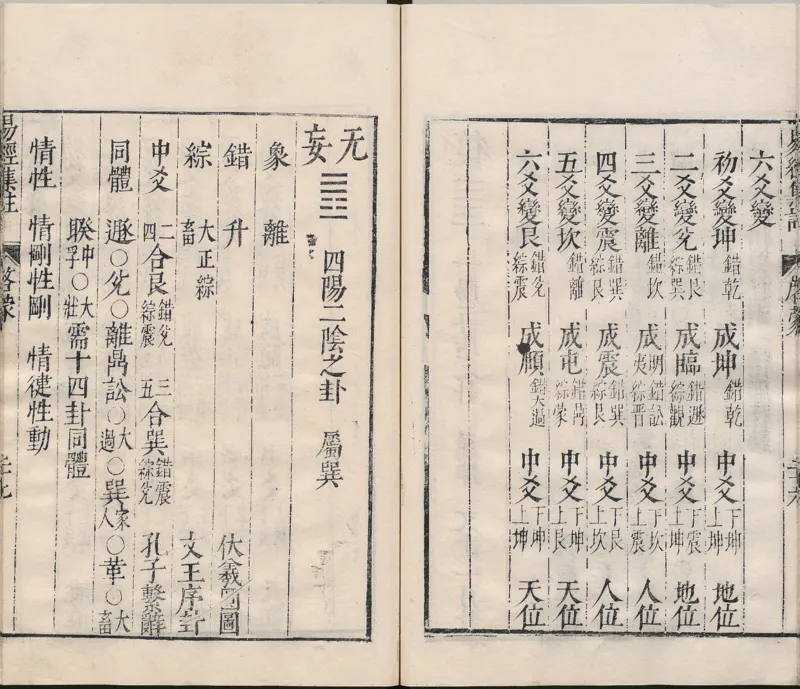 六爻變
初爻變坤 錯乾 成坤 錯乾 中爻 下坤 上坤 地位
二爻變兌 錯艮 綜巽 成臨 錯遯 綜觀 中爻 下震 上坤 地位
三爻變離 錯坎 成明夷 錯訟 綜晉 中爻 下坎 上震 人位
四爻變震 錯巽 綜艮 成震 錯巽 綜艮 中爻 下艮 上坎 人位
五爻變坎 錯離 成屯 錯鼎 綜蒙 中爻 下坤 上艮 天位
六爻變艮 錯兌 綜震 成頤 錯大過 中爻 下坤 上坤 天位
无妄 四陽二陰之卦 屬巽
象 離
錯 升 伏羲圓圖
綜 大畜 正綜 文王序卦
中爻 二四合艮 錯兌 綜震 三五合巽 錯震 綜兌 孔子繫辭
同體 遯○兌○離鼎訟○大過○巽家人○革○大畜
睽中孚○大壯需十四卦同體
情性 情剛性剛 情健性動
易經集註